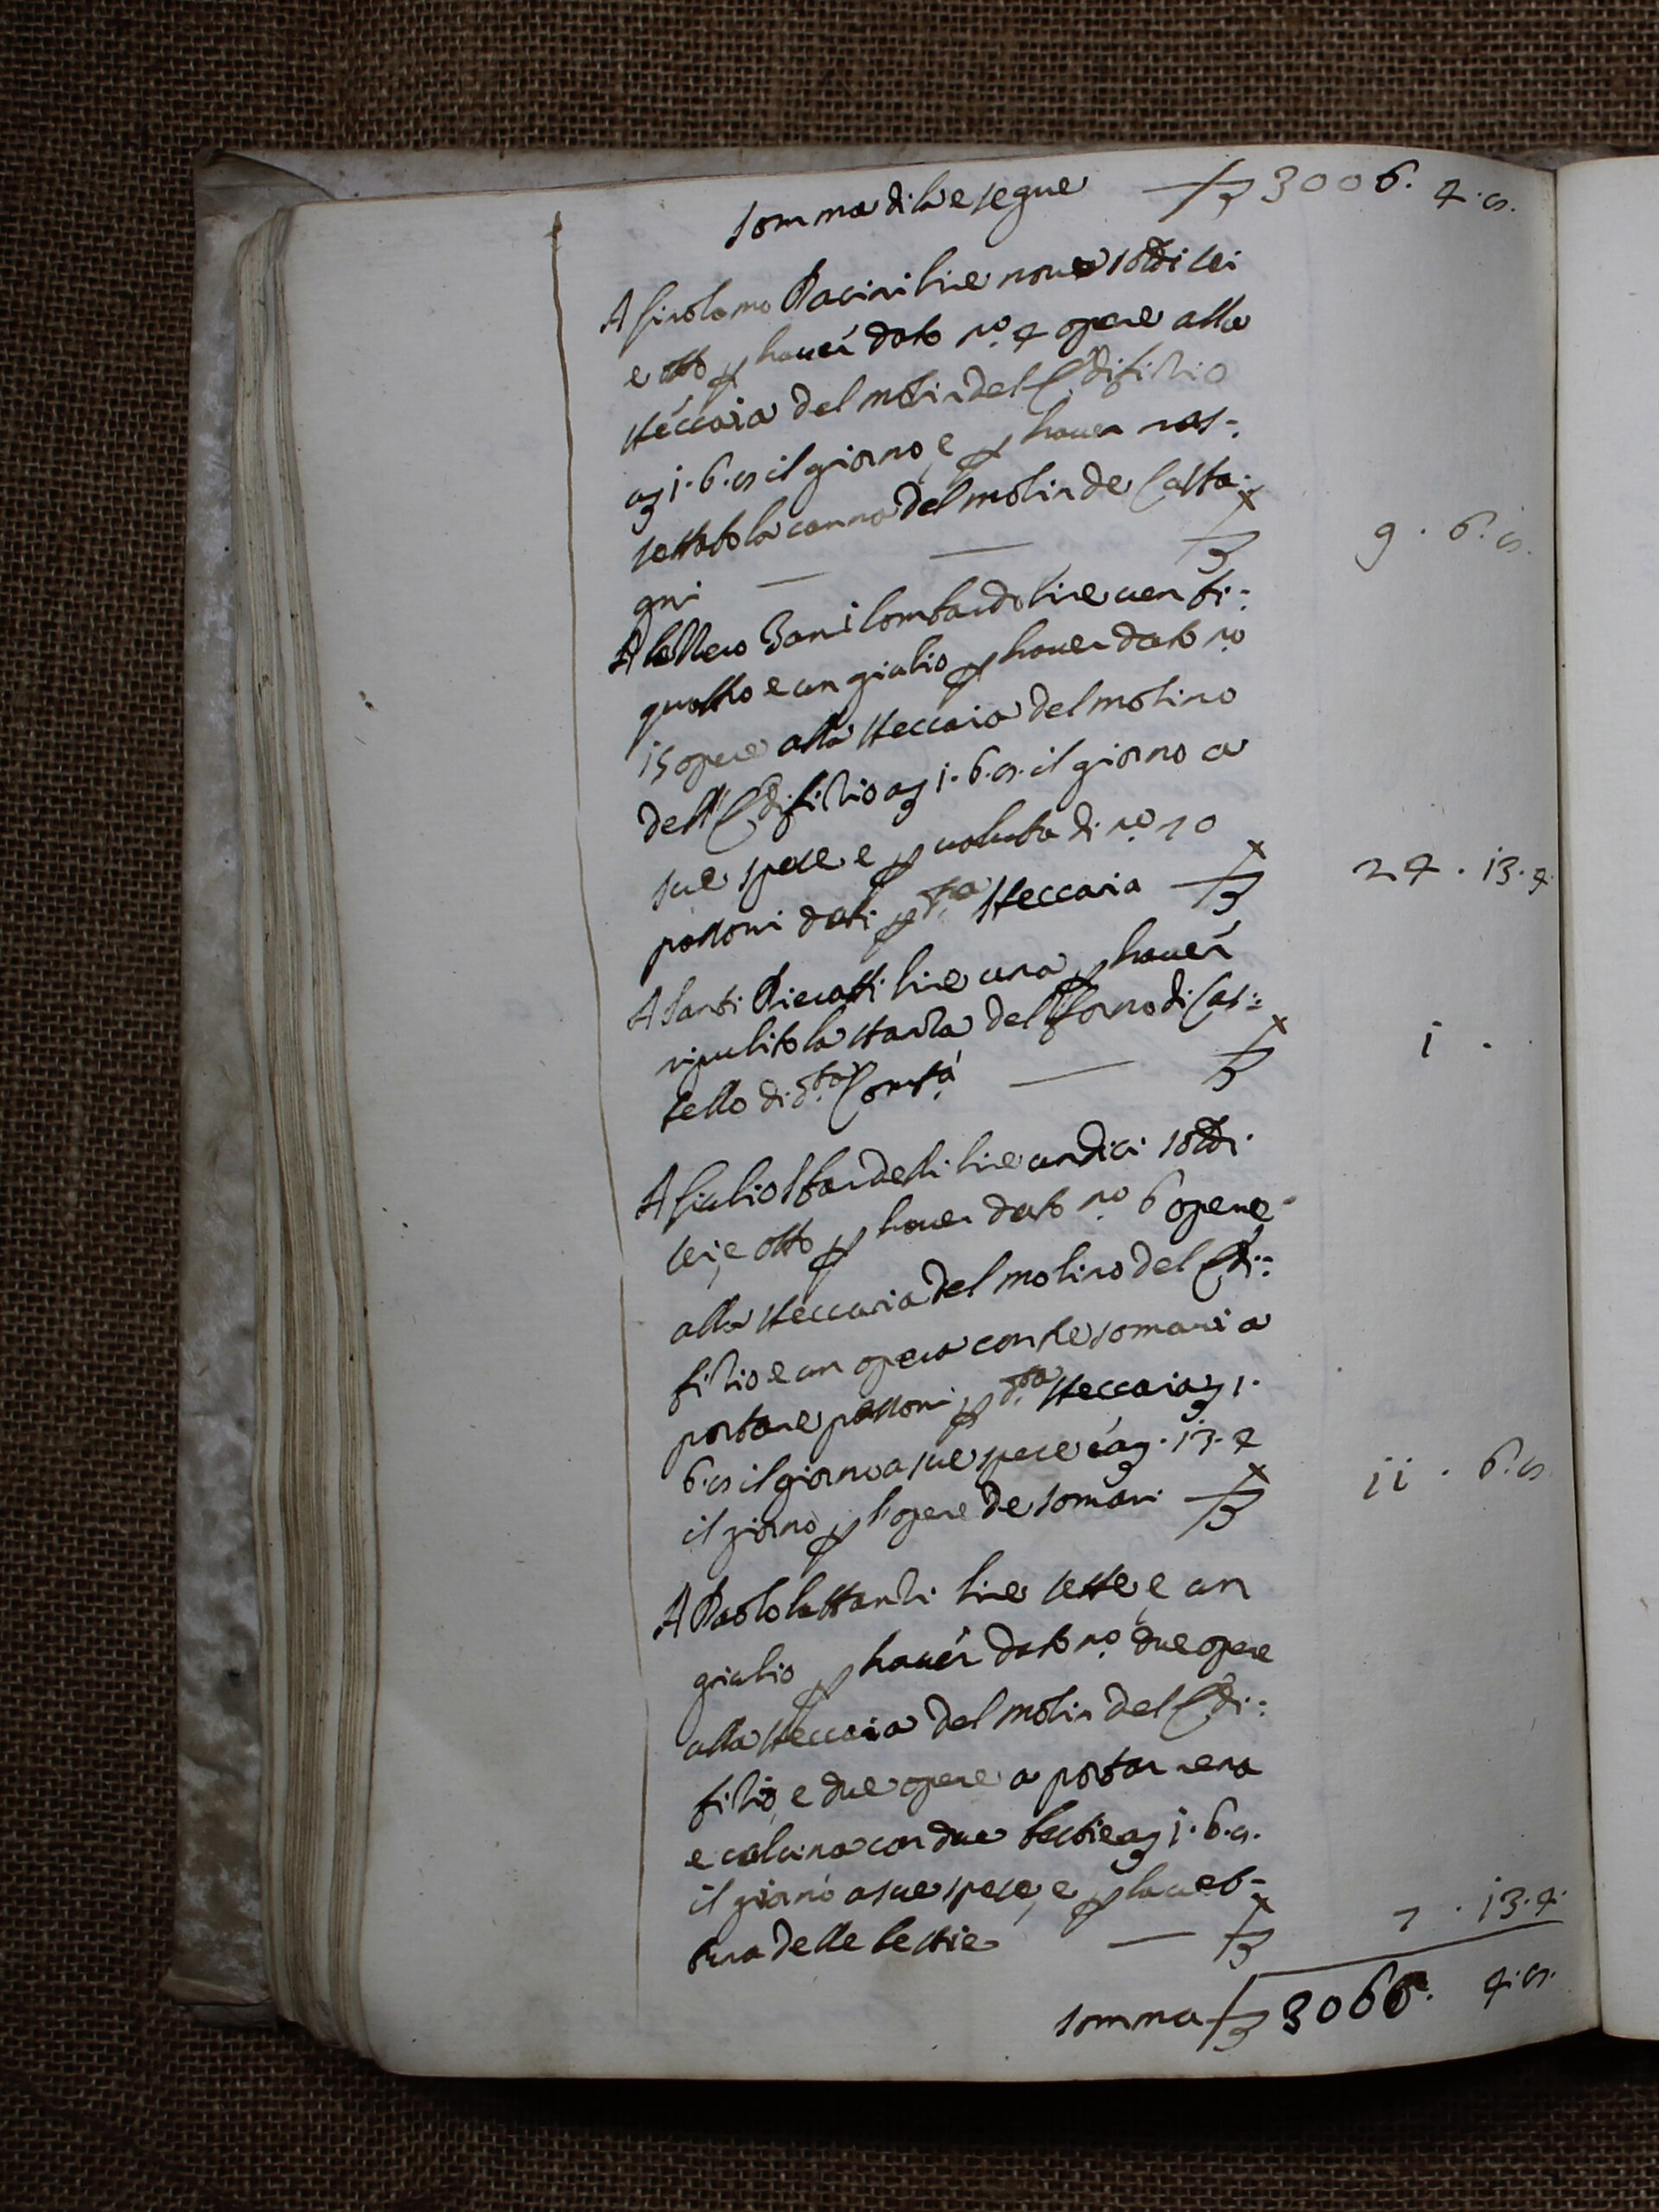 Somma di là e segue £ 3006. 4. 8.
A Girolamo Pacini lire nove soldi sei
e otto p haver dato no. 4 opere alla
steccaia del molin del Edifitio
a £ 1. 6. 8 il giorno, e p haver ras-
settato la canna del molin de Casta-
gni £ 9. 6. 8.
A Zani lombardo lire venti-
quattro e un giulio p haver dato no
15 opere alla steccaia del molino
dell Edifitio a £ 1. 6. 8. il giorno a
sue spese e p valuta di no. 70
passoni dati p d.ta steccaia £ 24. 13. 4.
A Santi lire una p haver
ripulito la stanza del forno di Cas-
tello di d.ta Comtà £ 1.
A Giulio Sbardelli lire undici soldi
sei, e otto p haver dato no 6 opere
alla steccaia del molino del Edi-
fitio e un opera con tre somari a
portare passoni p d.ta steccaia a £ 1.
6. 8 il giorno a sue spese e a £. 13. 4
il giorno p l'opere de somari £ 11. 6. 8
A Paolo lattanti lire sette, e un
giulio p haver dato no. due opere
alla steccaia del molin del Edi-
fitio, e due opere a portar rena
e calcina con due bestie a £ 1. 6. 8.
il giorno a sue spese, e p la vet-
tura delle bestie £ 7. 13. 4.
Somma £ 3060. 4. 8.